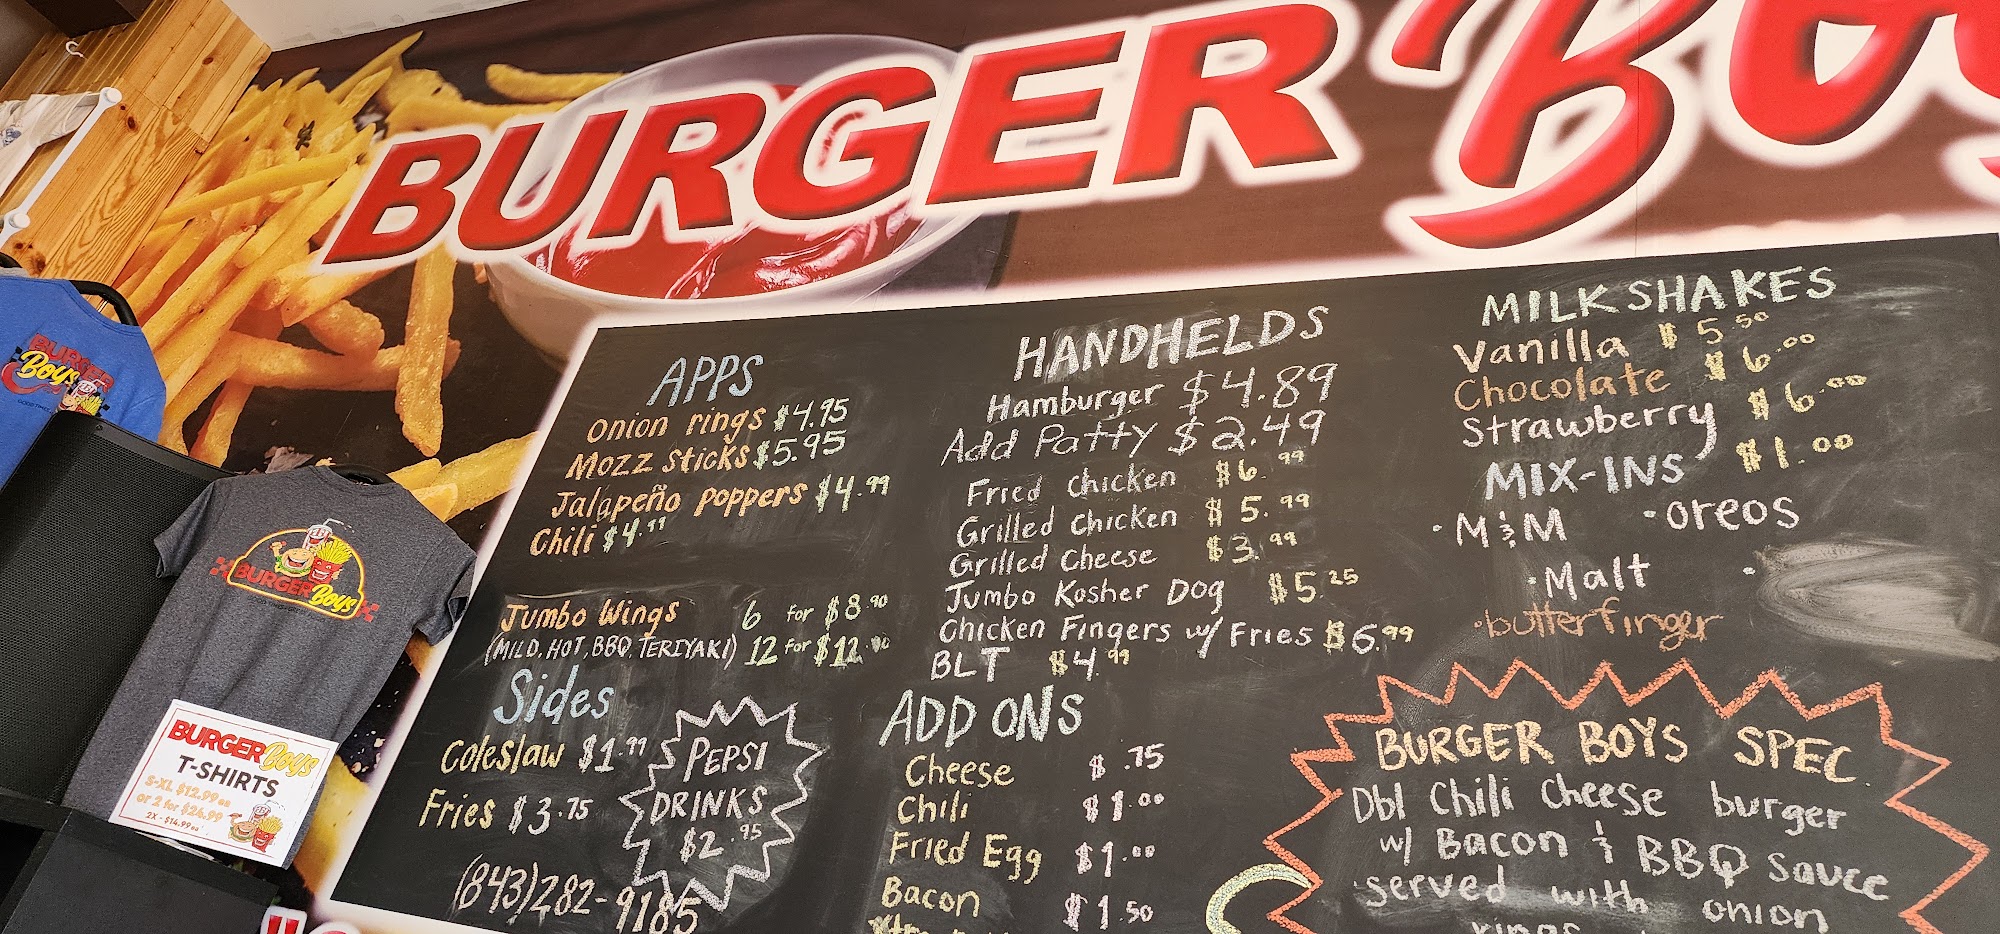 BURGER Boys
APPS
Onion rings $4.95
Mozz sticks $5.95
Jalapeño poppers $4.99
Chili $4.99
Jumbo Wings 6 for $8.90
(MILD, HOT, BBQ, TERIYAKI) 12 for $12.90
Sides
Coleslaw $1.99
Fries $3.75
PEPSI
DRINKS
$2.95
(843)282-9185
HANDHELDS
Hamburger $4.89
Add Patty $2.49
Fried Chicken $6.99
Grilled Chicken $5.99
Grilled Cheese $3.99
Jumbo Kosher Dog $5.25
Chicken Fingers w/ Fries $6.99
BLT $4.99
ADD ONS
Cheese $.75
Chili $1.00
Fried Egg $1.00
Bacon $1.50
MILKSHAKES
Vanilla $5.50
Chocolate $6.00
Strawberry $6.00
MIX-INS $1.00
•M&M •Oreos
•Malt •
•butterfinger
BURGER BOYS SPEC.
Dbl Chili Cheese burger
w/ Bacon & BBQ sauce
served with onion
rings
BURGER
Boys
BURGER
Boys
BURGER Boys
T-SHIRTS
S-XL $12.99 ea
or 2 for $24.99
2X - $14.99 ea